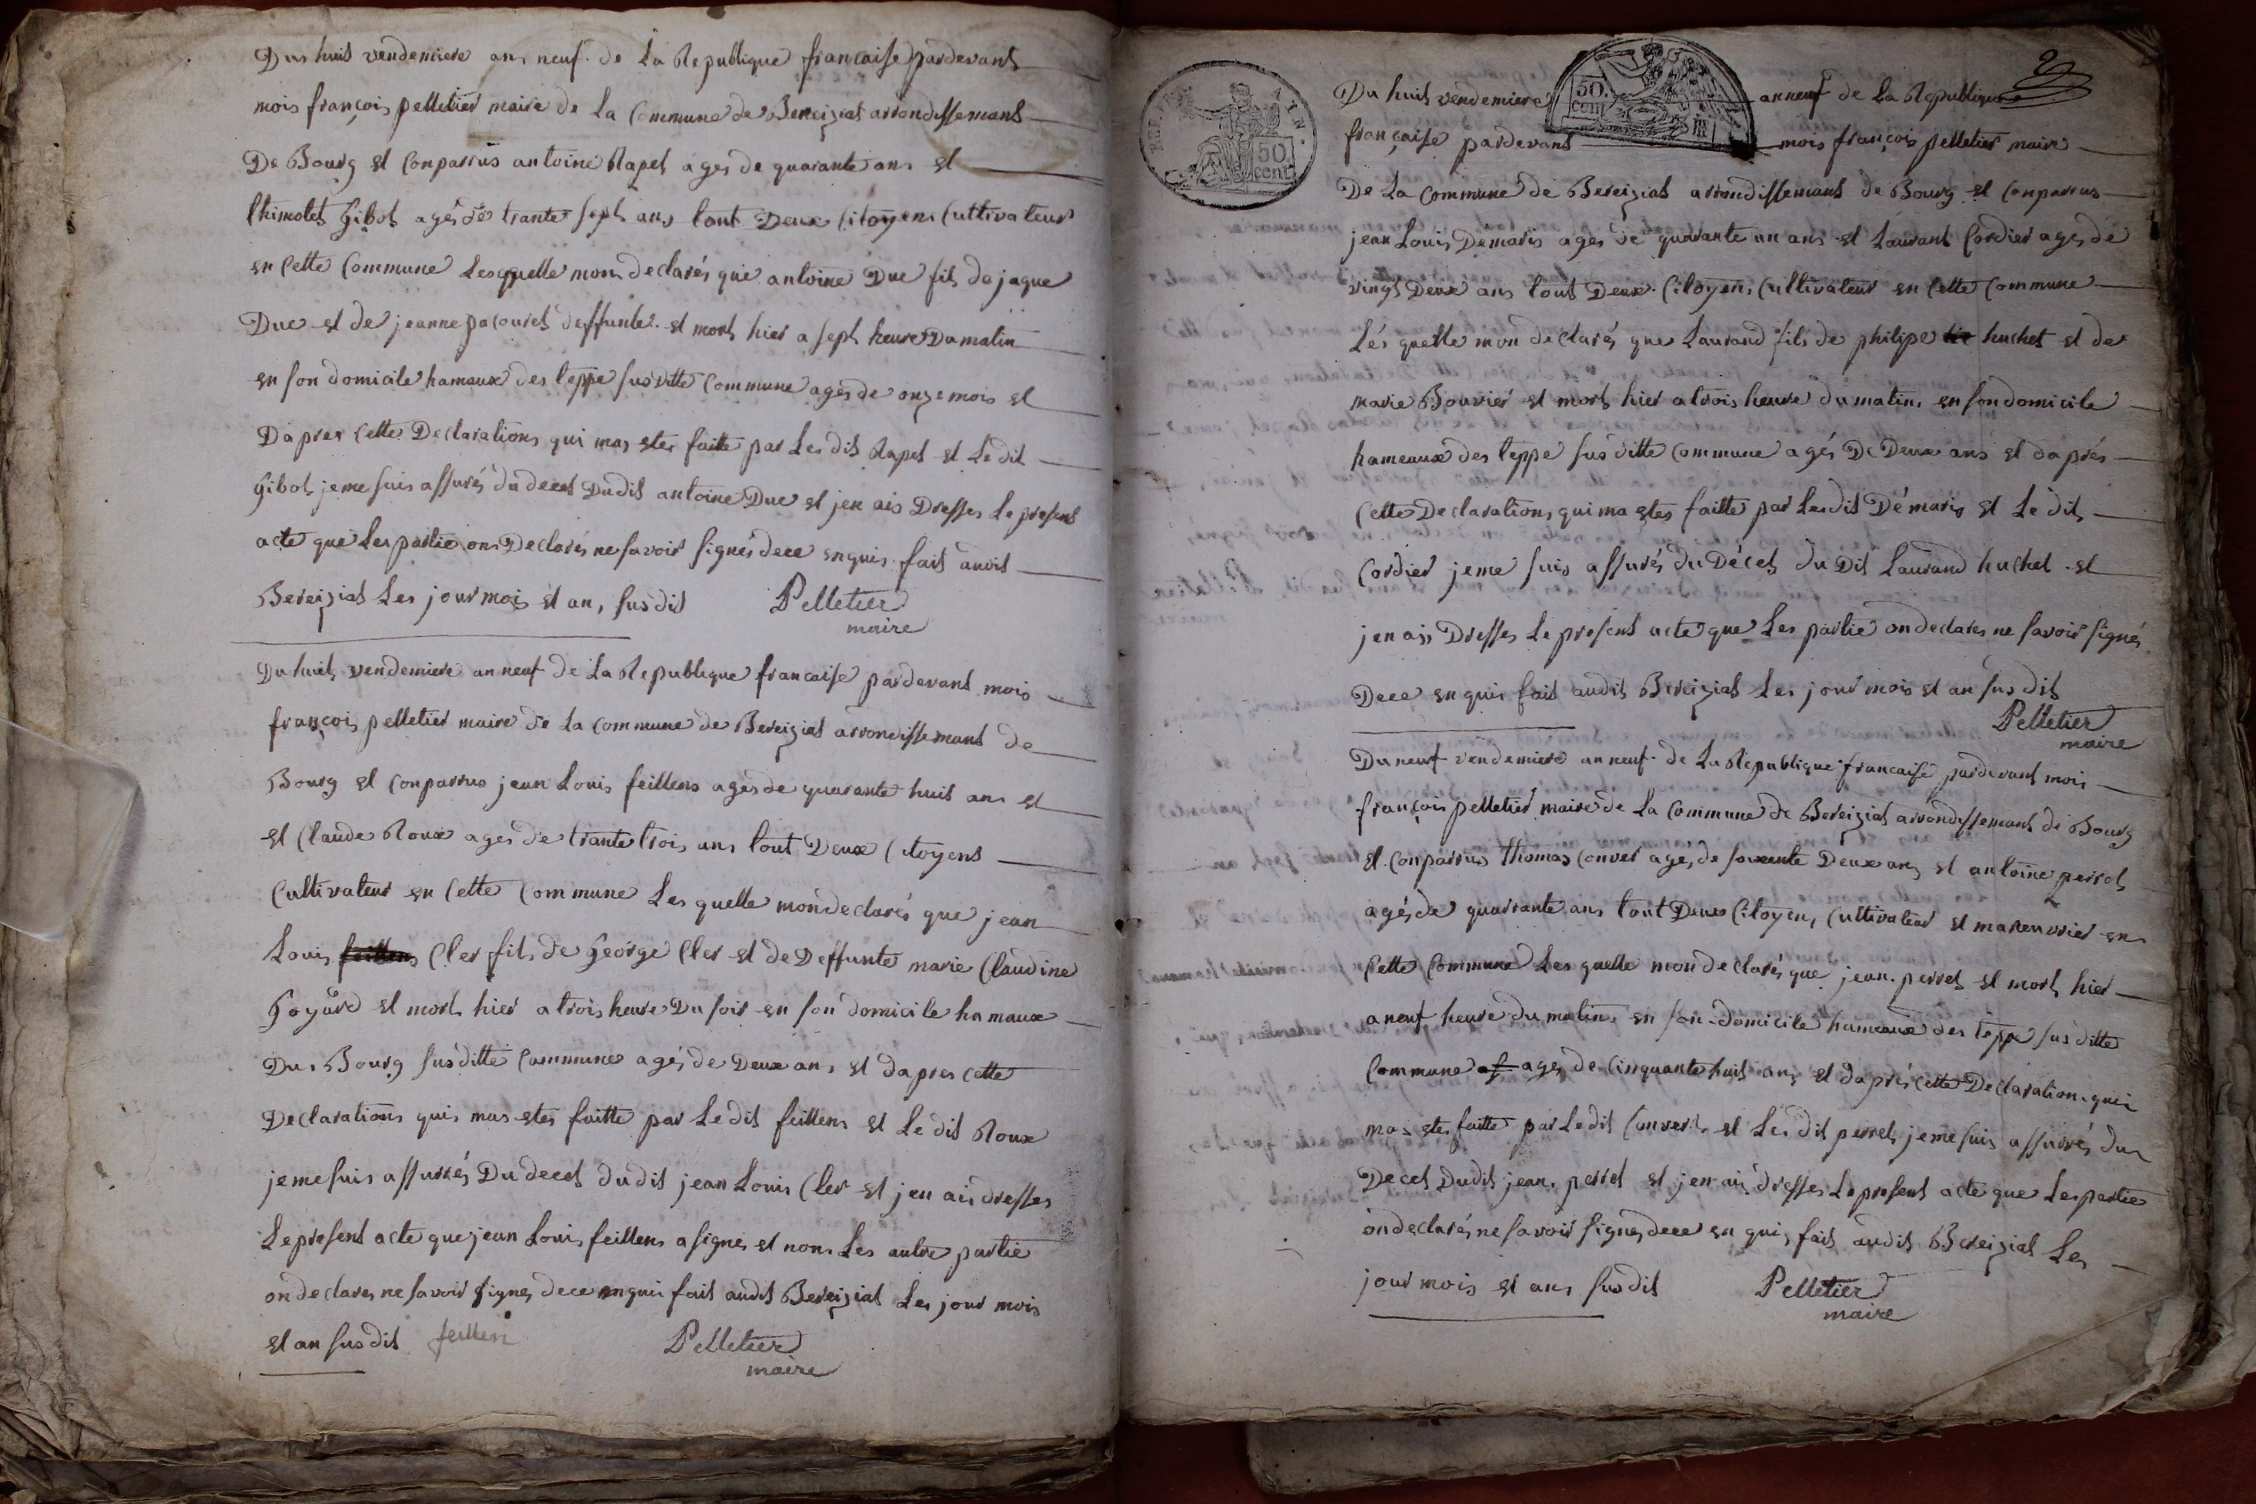 Du huit vendemiere an neuf de La Republique francaise pardevant
mois françois pelletier maire de La Commune de Bereiziat arrondissemant
De Bourg et Conparrus antoine Rapet agés de quarante ans et
thimotet Gibot agés de trante sept ans tout Deux Citoyens Cultivateur
en Cette Commune Lesquelle mon declarés que antoine Duc fils de jaque
Duc et de jeanne pacouret deffunte et mort hier a sept heure Du matin
en son domicile hameaux des teppe susditte Commune agés de onze mois et
Dapres Cette Declarations qui mas etes faitte par Les dit Rapet et Le dit
Gibot je me suis assurés du decet Dudit antoine Duc et jen ais Dresses Le present
acte que Les partie on Declarés ne savoir signés dece enquis fait audit
Bereiziat Les jour mois et an susdit Pelletier
maire
Du huit vendemiere an neuf de La Republique francaise pardevant mois
françois pelletier maire de La Commune de Bereiziat arrondissemant de
Bourg et Conparrus jean Louis feillens agés de quarante huit ans et
et Claude Roux agés de trante trois ans tout Deux Citoyens
Cultivateur en Cette Commune Les quelle mon declarés que jean
Louis Cler fils de George Cler et de Deffunte marie Claudine
Goyard et mort hier a trois heure Du soir en son domicile hamaux
Du Bourg susditte Commune agés de Deux ans et dapres Cette
Declarations quis mas etes faitte par Le dit feillens et Le dit Roux
je me suis assurrés Du decet dudit jean Louis Cler et jen ais dresses
Le present acte que jean Louis feillens a signes et non Les autre partie
on declares ne savoir signes dece enquis fait audit Bereiziat Les jour mois
et an susdit feillens Pelletier
maire
2
50 cent
50 cent.
Du huit vendemiere an neuf de La Republique
française pardevant mois françois pelletier maire
De La Commune de Bereiziat arrondissemant de Bourg et Conparrus
jean Louis Demaris agés de quarante un ans et Laurant Cordier agés de
vingt Deux ans tout Deux Citoyens Cultivateur en Cette Commune
Lés quelle mon declarés que Laurand fils de philipe huchet et de
marie Bouvier et mort hier a trois heure du matin en son domicile
hameaux des teppe susditte Commune agés De Deux ans et daprés
Cette Declarations qui ma etes faitte par Les dit Démaris et Le dit
Cordier je me suis assurés du Décet du Dit Laurand huchet et
jen ais Dresses Le present acte que Les partie on declares ne savoir signés
Dece enquis fait audit Bereiziat Les jour mois et an susdit
Pelletier
maire
Du neuf vendemiere an neuf de La Republique francaise pardevant mois
françois pelletier maire de La Commune de Bereiziat arrondissemant de Bourg
et Conparrus thomas Convert agés de soixente Deux ans et antoine perret
agés de quarrante ans tout Deux Citoyens Cultivateur et maneuvrier en
Cette Commune Les quelle mon declarés que jean perret et mort hier
a neuf heure du matin en son domicile hameaux des teppe susditte
Commune agés de Cinquante huit ans et daprés Cette Declaration qui
mas etes faitte par Le dit Convert et Les dit perret je me suis assurrés du
Decet Dudit jean perret et jen ais dresses Le present acte que Les partie
on declarés ne savoir signes dece enquis fait audit Bereiziat Les
jour mois et ans susdit Pelletier
maire